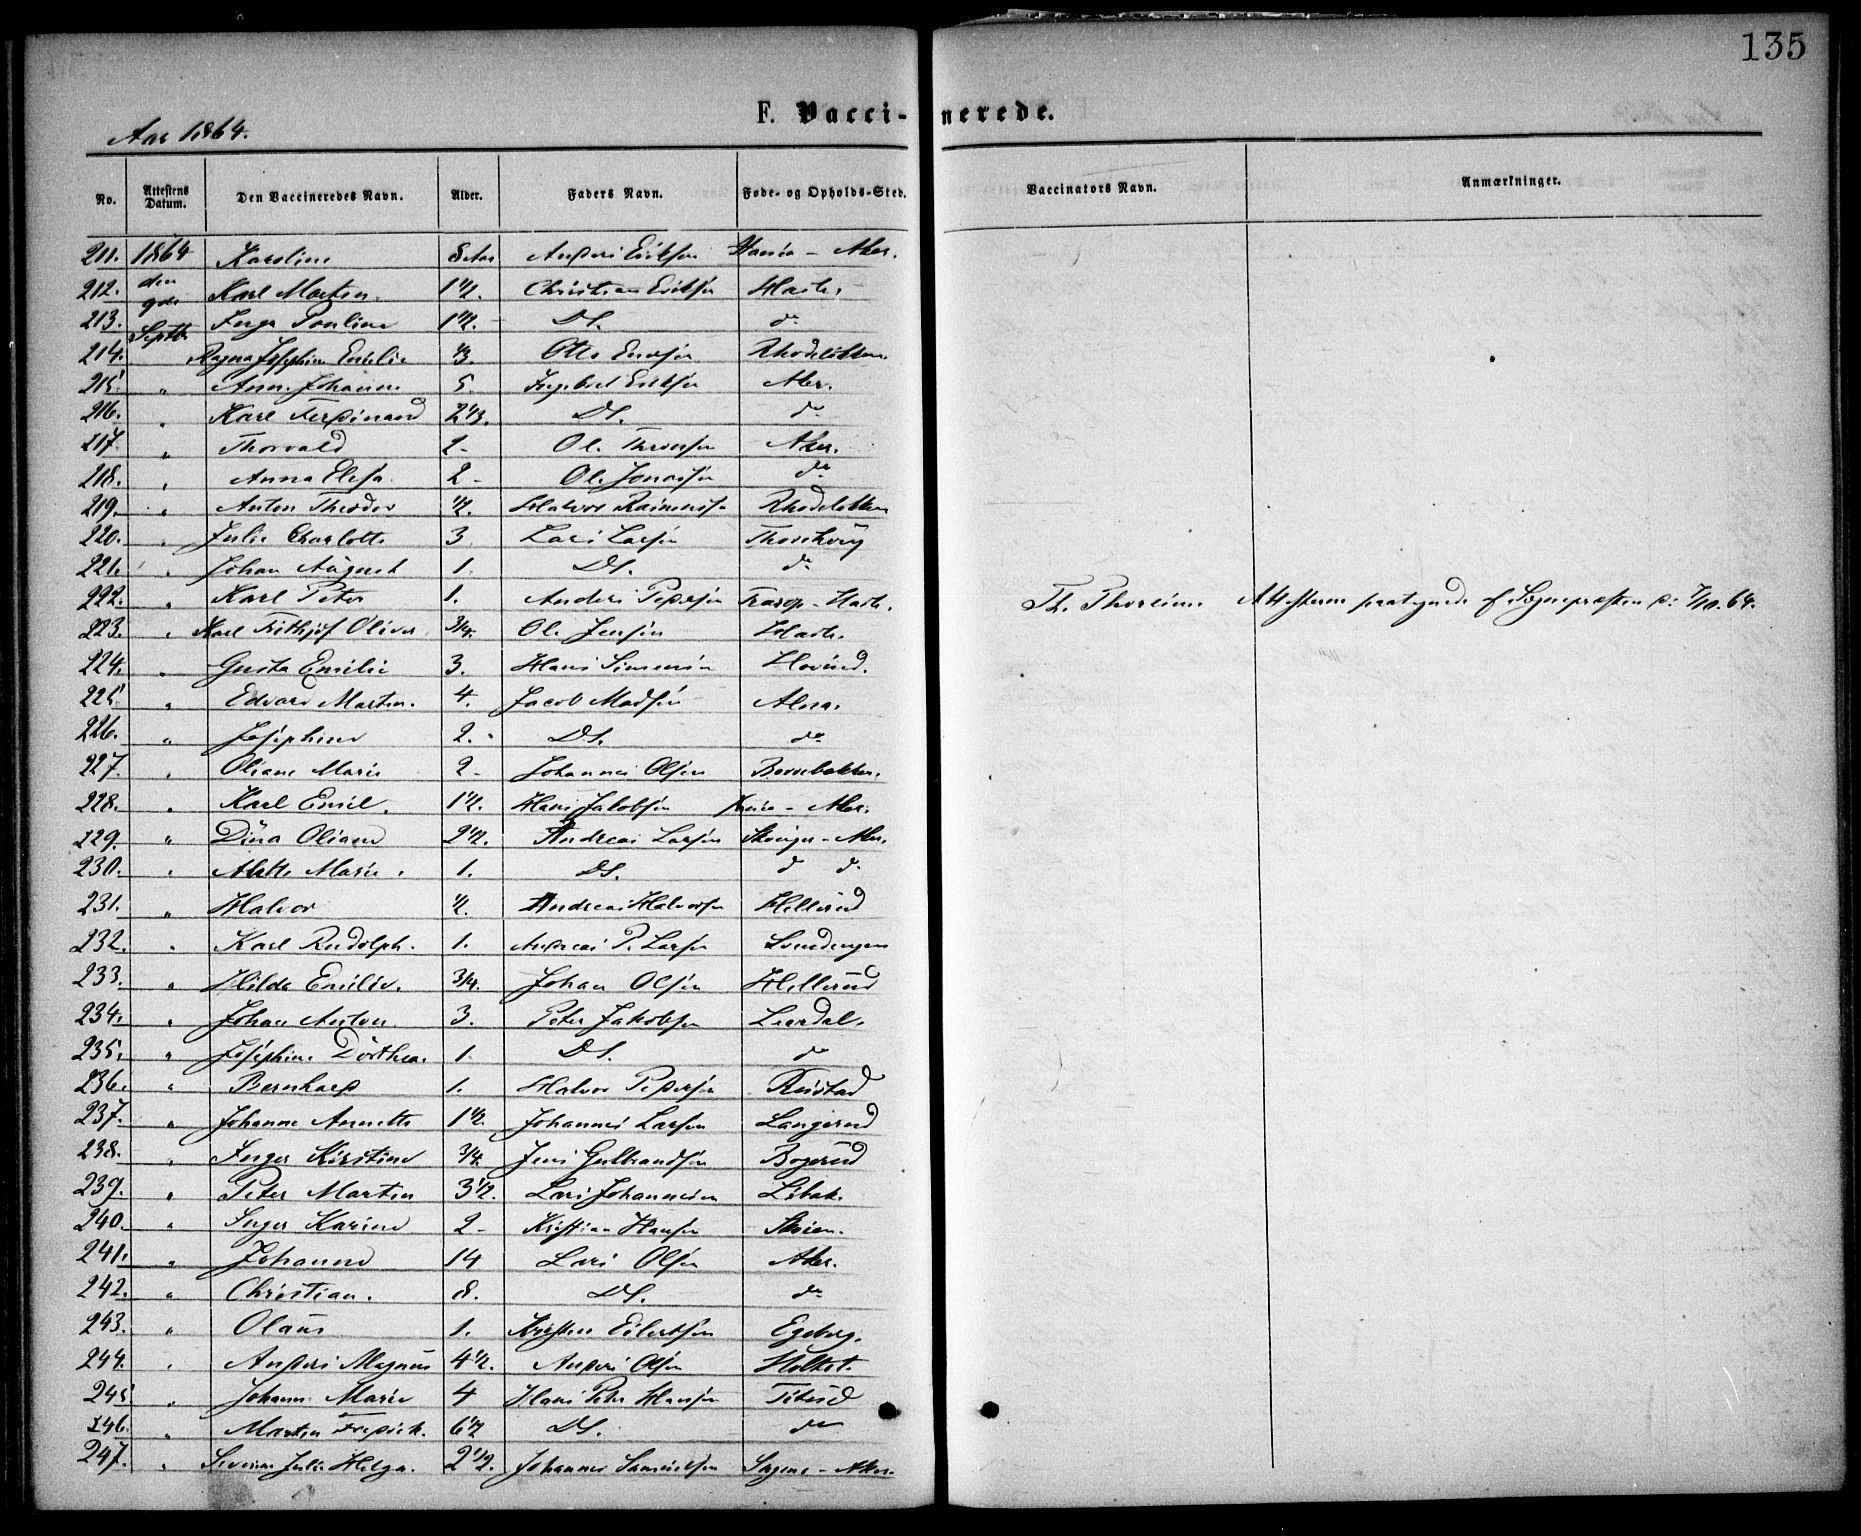 135
F. Vaccinerede.
Aar 1864.
No. Attestens Datum. Den Vaccineredes Navn. Alder. Faders Navn. Føde- og Opholds-Sted. Vaccinators Navn. Anmærkninger.
211. 1864 Karoline 8 Aar Anders Eriksen Aker.
212. den 9de Karl Martin. 1 1/2. Christian Eriksen Hasle.
213. Septbr Inga Pauline 1 1/2. DS. do
214. Ragna Josephine Emilie 1/3. Otto Rhodeløkken
215. " Anne Johanne 5. Ingebret Eriksen Aker.
216. " Karl Ferdinand 2 1/3. DS. do
217. " Thorvald 1 - Ole Aker.
218. " Anna Elisa. 2 - Ole Jonassen do
219. " Anton Theodor 1/2. Halvor Rhodeløkken
220. " Julie Charlotte 3. Lars Larsen Thorshoug
221. " Johan August 1. DS. do
222. " Karl Peter 1. Anders Pedersen Hasle. Th. Attesterne paategnede af Sognepræsten d: 7/10. 64.
223. " Karl Frithjof Oliver 3/4. Ole Jensen Hasle.
224. " Gusta Emilie 3. Hans Simensen Hovind.
225. " Edvard Martin. 4. Jacob Madsen Alna.
226. " Josephine 2. DS. do
227. " Oliane Marie 2 - Johannes Olsen
228. " Karl Emil. 1 1/2. Hans Jakobsen Aker.
229. " Dina Oliane 2 1/2. Andreas Larsen Aker.
230. " Alette Marie. 1. DS. do do
231. " Halvor 1/2. Andreas Halvorsen Hellerud
232. " Karl Rudolph. 1. Andreas P. Larsen Svendengen
233. " Hilda Emilie. 3/4. Johan Olsen Hellerud
234. " Johan Anton. 3. Peter Jakobsen Leerdal.
235. " Josephine Dorthea. 1. DS. do
236. " Bernhard 1. Halvor Pedersen Rustad
237. " Johanne Annette 1 1/2. Johannes Larsen Langerud
238. " Inger Kirstine 3/4. Jens Gulbrandsen Bogerud
239. " Peter Martin 3 1/2. Lars Johannesen
240. " Inger Karine 2 - Kristian Hansen
241. " Johanne 14 Lars Olsen Aker.
242. " Christian. 8. DS. do
243. " Olaus 1. Kristen Eilertsen Egeberg.
244. " Anders Magnus 4 1/2. Anders Olsen Holtet.
245 " Johanne Marie 4 Hans Peter Hansen
246. " Martin Fredrik. 6 1/2 DS. do
247. " Severine Julie Helga. 2 1/2. Johannes Samuelsen Sogene - Aker.